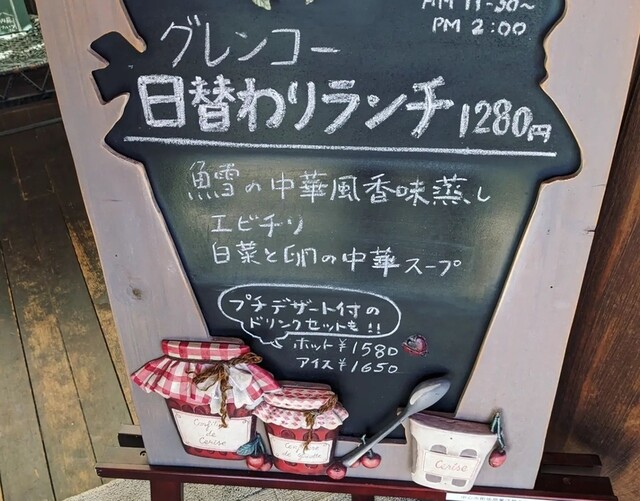 AM 11:30~
PM 2:00
グレンコー
日替わりランチ 1280円
鱈の中華風香味蒸し
エビチリ
白菜と卵の中華スープ
プチデザート付の
ドリンクセットも!!
ホット ¥1580
アイス ¥1650
Confiture
de
Cerise
Confiture
de
Cerise